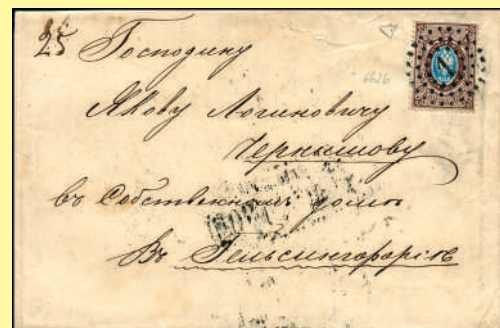 25 Господину
6626
Якову Логиновичу
Чернышову
въ Собственномъ домѣ
Въ Гельсингфорсѣ